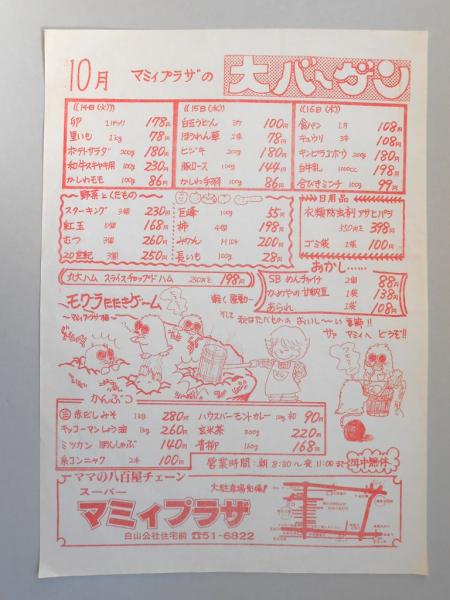 10月 マミィプラザの 大バーゲン
((14日(火)))
卵 1パック 178円
里いも 1kg 78円
ポテトサラダ 200g 180円
和牛スキヤキ用 100g 230円
かしわモモ 100g 86円
((15日(水)))
白玉うどん 3ヶ 100円
ほうれん草 2束 78円
ヒジキ 200g 180円
豚ロース 100g 144円
かしわ手羽 100g 86円
((16日(木)))
食パン 1斤 108円
キュウリ 3本 108円
キンピラゴボウ 200g 180円
台牛乳 1000cc 198円
合びきミンチ 100g 99円
野菜とくだもの
スターキング 3個 230円
紅玉 168円
むつ 3個 260円
20世紀 3個 250円
巨峰 100g 55円
柿 4個 198円
みりん 200円
長いも 100g 28円
日用品
衣類防虫剤 アサヒパラ
350円を 398円
ゴミ袋 2袋 100円
丸大ハム スライスチョップドハム 250円を 198円
おかし
SB めんチャイナ 2個 88円
かめやの甘納豆 1袋 138円
あられ 1袋 108円
モグラたたきゲーム
〜マミィプラザ編〜
軽く運動
そして
秋はたべものの おいし〜い季節!!
サァ マミィへ どうぞ!!
かんぶつ
㊂ 赤だしみそ 1kg 280円
キッコーマンしょう油 1kg 260円
ミツカン ぽんしゃぶ 140円
糸コンニャク 2本 100円
ハウスバーモントカレー 90円
玄米茶 200g 220円
青柳 160g 168円
営業時間:朝 8:30〜夜 11:00まで
年中無休
ママの八百屋チェーン
スーパー
マミィプラザ
白山公社住宅前 ☎51-6822
大駐車場完備!